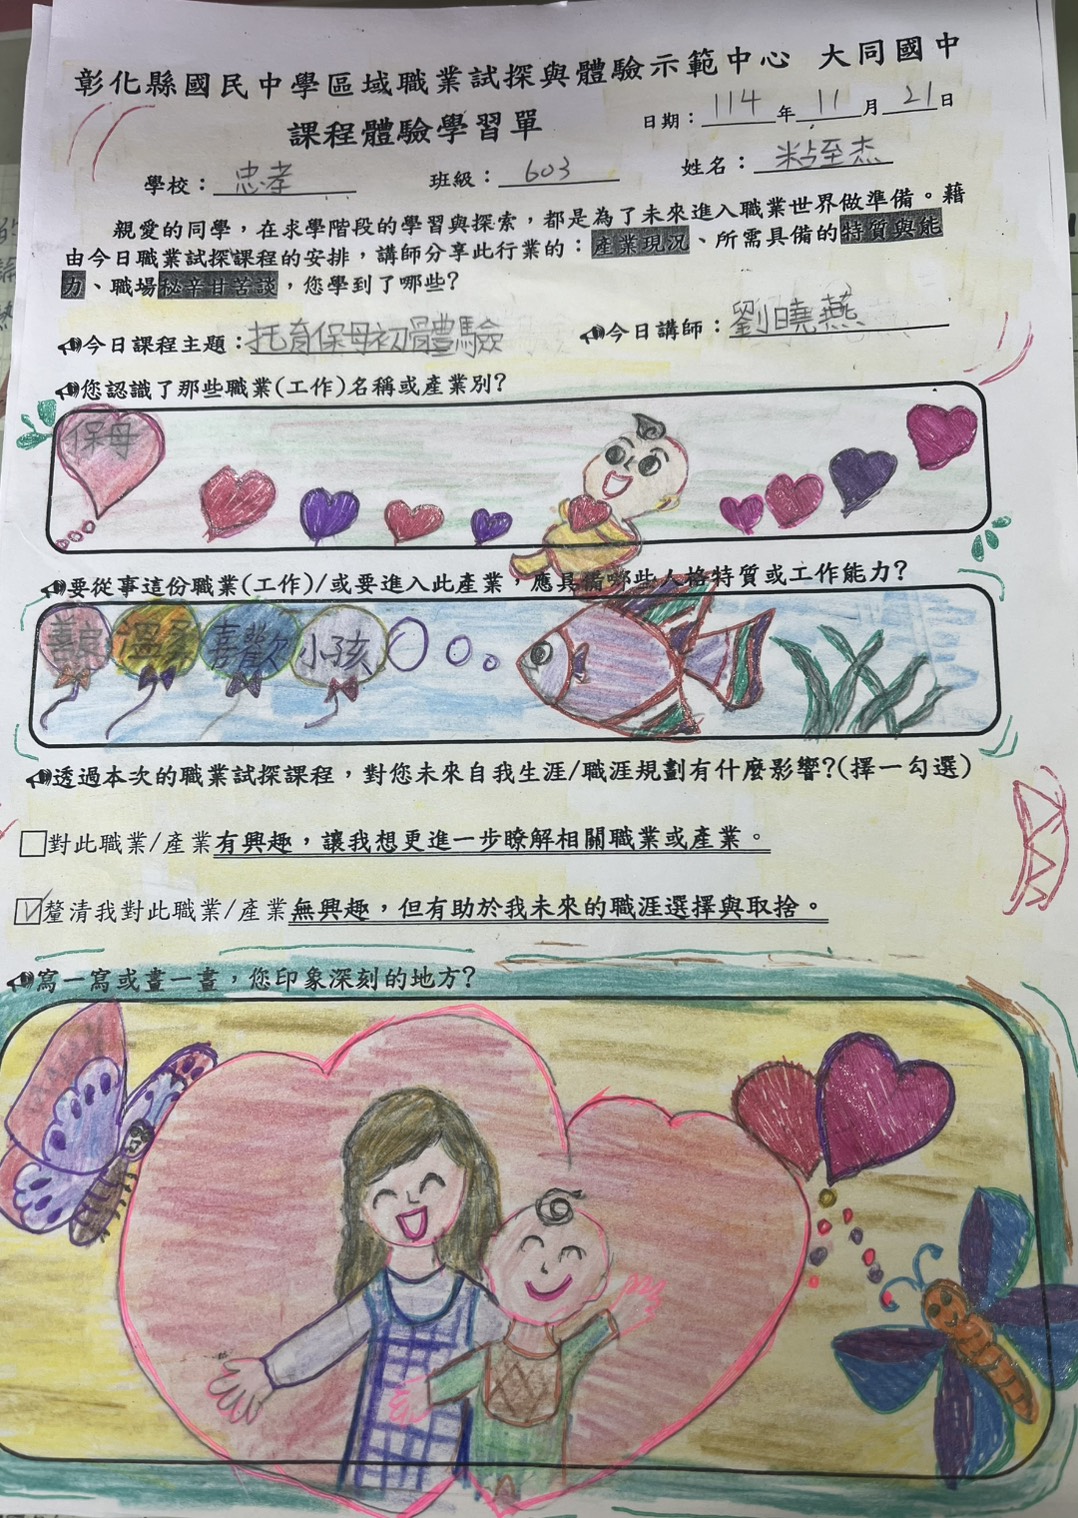 彰化縣國民中學區域職業試探與體驗示範中心 大同國中
課程體驗學習單
日期：114年11月21日
學校：忠孝 班級：603 姓名：粘至杰
親愛的同學，在求學階段的學習與探索，都是為了未來進入職業世界做準備。藉
由今日職業試探課程的安排，講師分享此行業的：產業現況、所需具備的特質與能
力、職場秘辛甘苦談，您學到了哪些？
今日課程主題：托育保母初體驗 今日講師：劉曉燕
您認識了那些職業(工作)名稱或產業別？
保母
要從事這份職業(工作)/或要進入此產業，應具備哪些人格特質或工作能力？
善良 溫柔 喜歡 小孩
透過本次的職業試探課程，對您未來自我生涯/職涯規劃有什麼影響?(擇一勾選)
□對此職業/產業有興趣，讓我想更進一步瞭解相關職業或產業。
☑釐清我對此職業/產業無興趣，但有助於我未來的職涯選擇與取捨。
寫一寫或畫一畫，您印象深刻的地方？